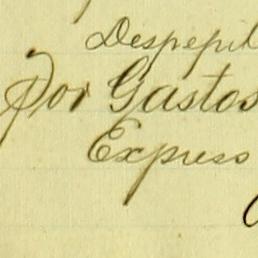 Despepit
Por Gastos
Express